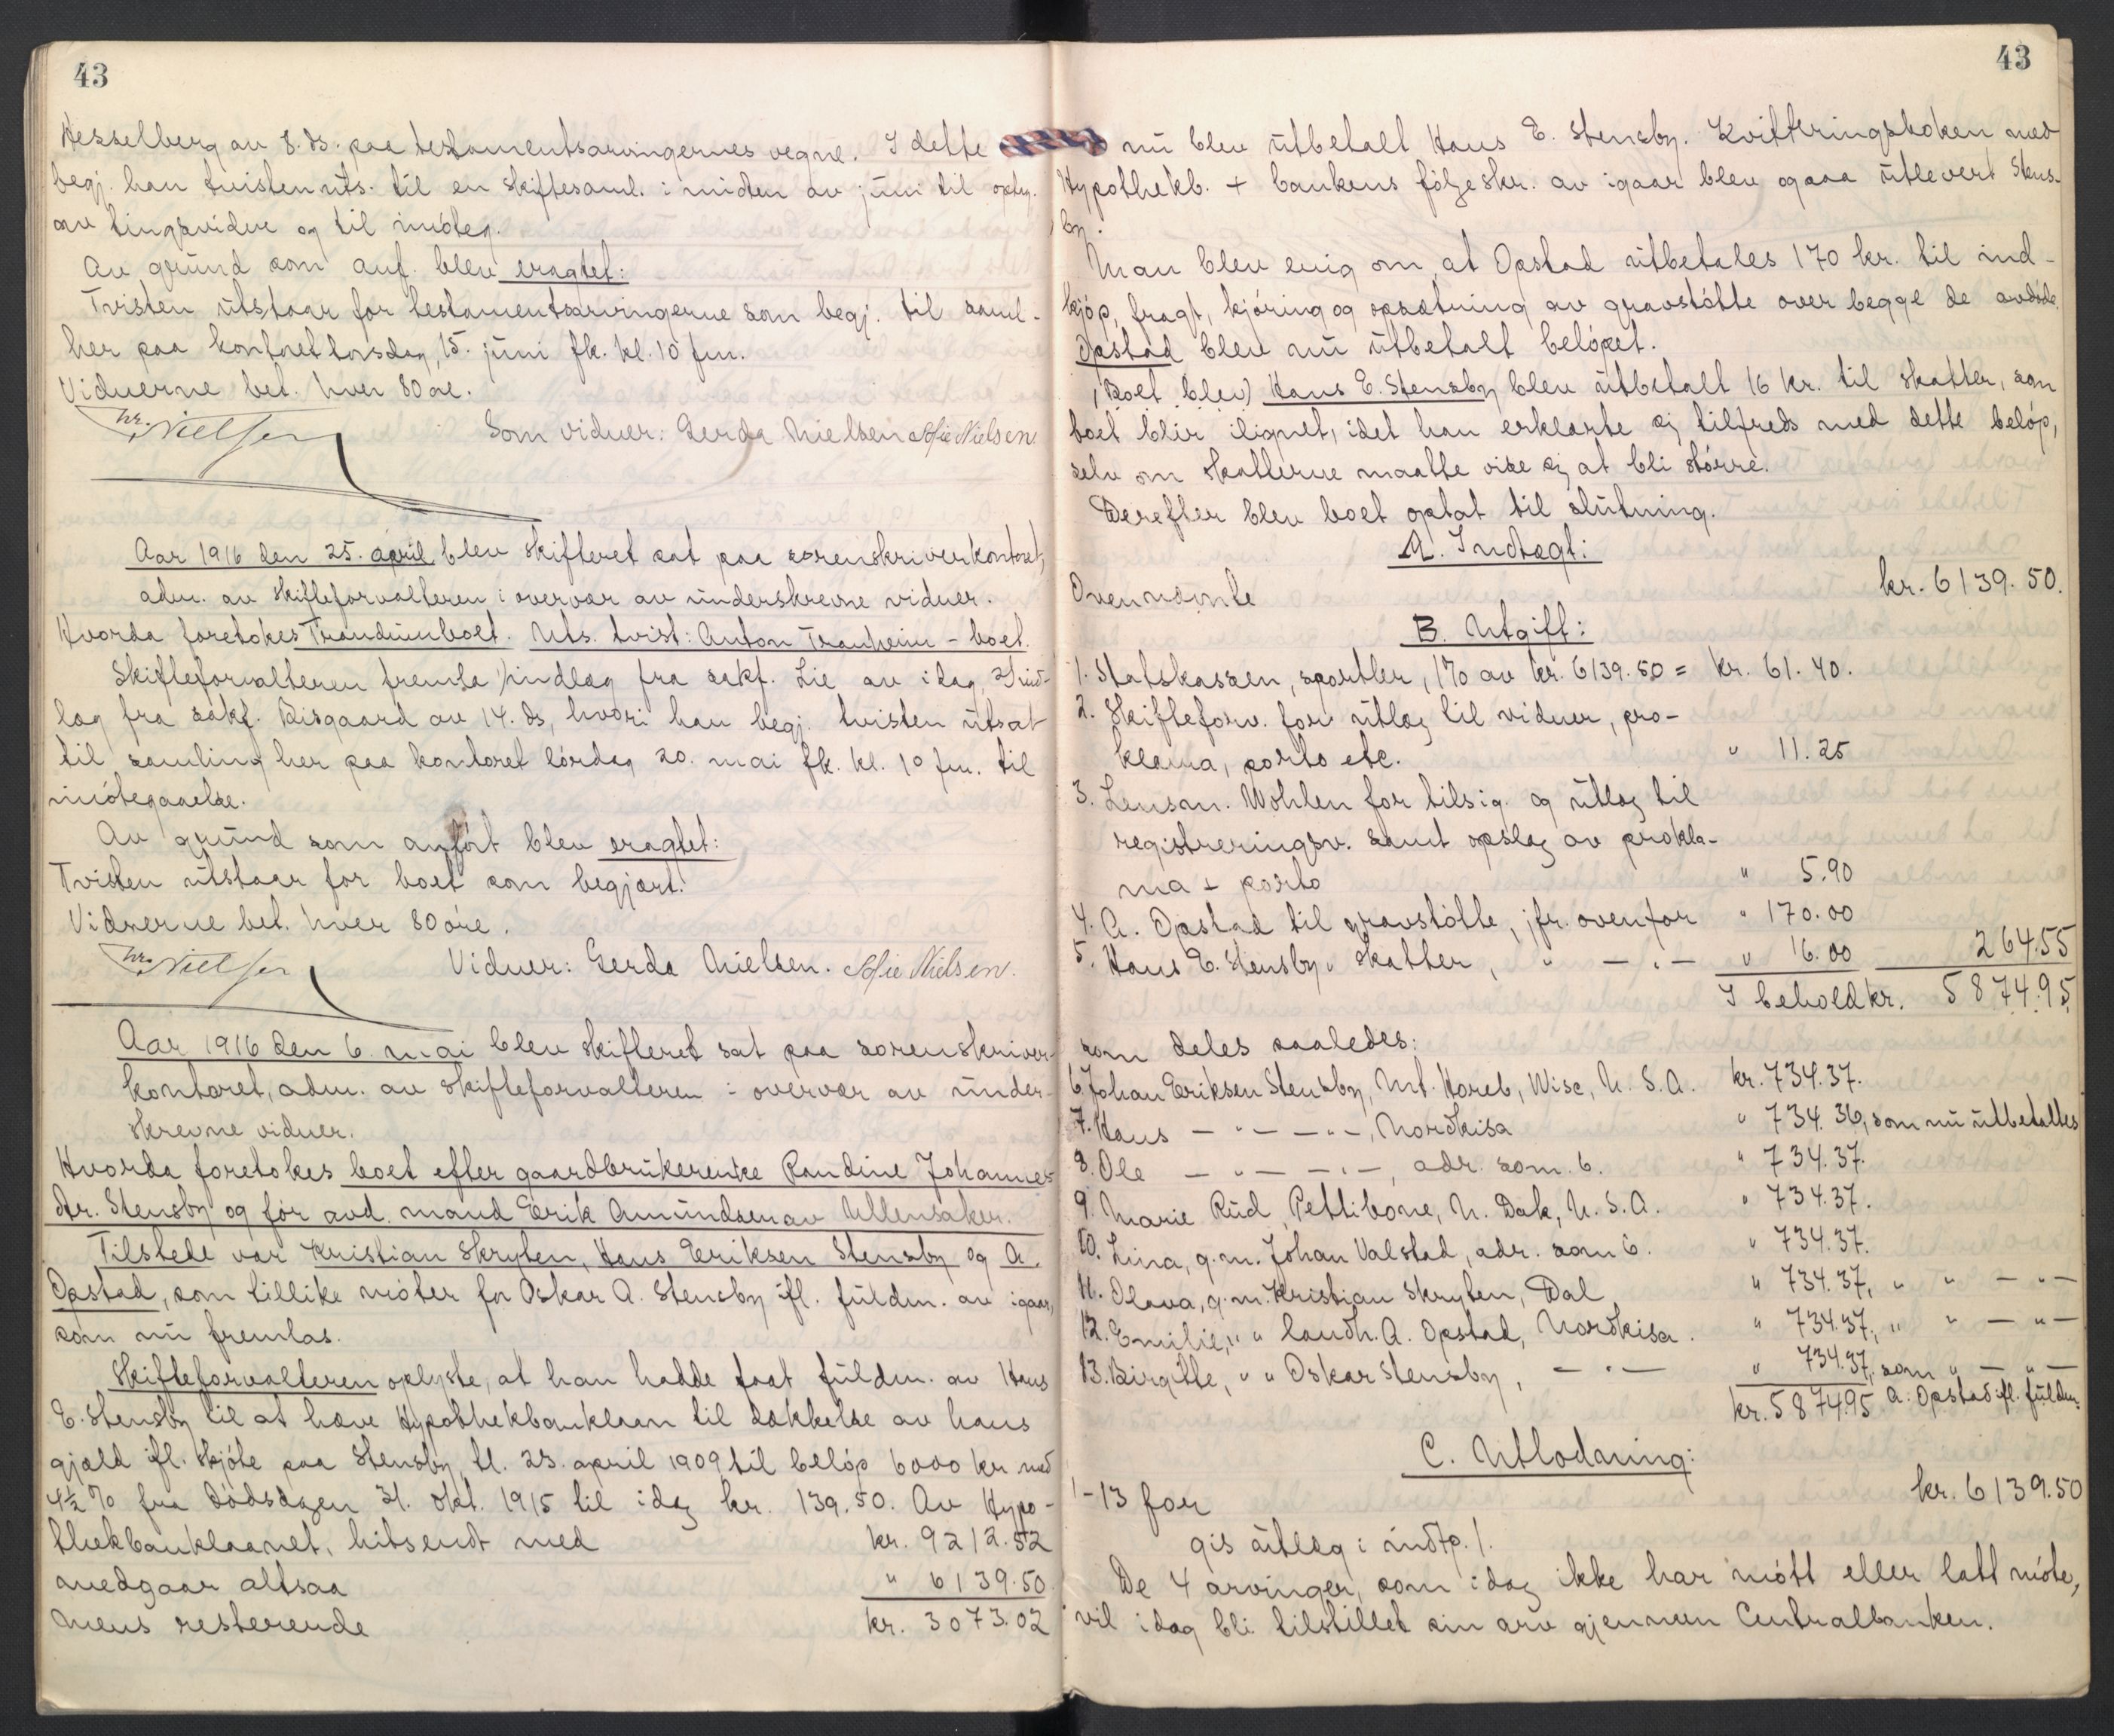 43
Hesselberg av 8. ds. paa testamentsarvingernes vegne. I dette
begj. han tvisten uts. til en skiftesaml. i midten av juni til optg.
av tingsvidne og til imøteg.
Av grund som anf. blev eragtet:
Tvisten utstaar for testamentsarvingerne som begj. til saml.
her paa kontoret torsdag 15. juni fk. kl. 10 fm.
Vidnerne bet. hver 80 øre.
Nielsen
Som vidner: Gerda Nielsen Sofie Nielsen
Aar 1916 den 25. april blev skifteret sat paa sorenskriverkontoret,
adm. av skifteforvalteren i overvær av underskrevne vidner.
Hvorda foretokes Trandumboet. Uts. tvist: Anton Tranheim - boet.
Skifteforvalteren fremla indlæg fra sakf. Lie av idag. Ind-
læg fra sakf. Bisgaard av 14. ds, hvori han begj. tvisten utsat
til samling her paa kontoret lørdag 20. mai fk. kl. 10 fm. til
imøtegaaelse.
Av grund som anført blev eragtet:
Tvisten utstaar for boet som begjært.
Vidnerne bet. hver 80 øre.
Nielsen
Vidner: Gerda Nielsen. Sofie Nielsen.
Aar 1916 den 6. mai blev skifteret sat paa sorenskriver-
kontoret, adm. av skifteforvalteren i overvær av under-
skrevne vidner.
Hvorda foretokes boet efter gaardbrukerenke Randine Johannes-
dtr. Stensby og før avd. mand Erik Amundsen av Ullensaker.
Tilstede var Kristian Skryten, Hans Eriksen Stensby og A.
Opstad, som tillike møter for Oskar A. Stensby ifl. fuldm. av igaar,
som nu fremlas.
Skifteforvalteren oplyste, at han hadde faat fuldm. av Hans
E. Stensby til at hæve Hypothekbanklaan til dækkelse av hans
gjæld ifl. skjøte paa Stensby, tl. 23. april 1909 til beløp 6000 kr med
4½ % fra dødsdagen 31. okt. 1915 til idag kr. 139.50. Av Hypo-
thekbanklaanet, hitsendt med kr. 9212.52
medgaar altsaa " 6139.50
mens resterende kr. 3073.02
43
nu blev utbetalt Hans E. Stensby. Kvitteringsboken med
Hypothekb. + bankens følgeskr. av igaar blev ogsaa utlevert Stens-
by.
Man blev enig om, at Opstad utbetales 170 kr. til ind-
kjøp, fragt, kjøring og opsætning av gravstøtte over begge de avdøde.
Opstad blev nu utbetalt beløpet.
(Boet blev) Hans E. Stensby blev utbetalt 16 kr. til skatter, som
boet blir ilignet, idet han erklærte sig tilfreds med dette beløp,
selv om skatterne maatte vise sig at bli større.
Derefter blev boet optat til slutning.
A. Indtægt:
Ovennævnte kr. 6139.50.
B. Utgift:
1. Statskassen, sportler, 1% av kr. 6139.50 = kr. 61.40.
2. Skifteforv. for utlæg til vidner, pro-
klama, porto etc. " 11.25
3. Lensm. Wohlen for tilsig. og utlæg til
registreringsv. samt opslag av prokla-
ma + porto " 5.90
4. A. Opstad til gravstøtte, jfr. ovenfor " 170.00
5. Hans E. Stensby " skatter, " — " — " 16.00 264.55
I behold kr. 5874.95
som deles saaledes:
6. Johan Eriksen Stensby, Mt. Horeb, Wisc, U. S. A. kr. 734.37.
7. Hans — " — — " —, Nordkisa " 734.36, som nu utbetaltes
8. Ole — " — — " —, adr. som 6. " 734.37.
9. Marie Rud, Pettibone, N. Dak, U. S. A. " 734.37.
10. Lina, g. m. Johan Valstad, adr. som 6. " 734.37.
11. Olava, g. m. Kristian Skryten, Dal " 734.37, " " — " —
12. Emilie, " " landh. A. Opstad, Nordkisa. " 734.37, " " — " —
13. Birgitte, " " Oskar Stensby, — " — " 734.37, som " — " —
kr. 5874.95 A. Opstad ifl. fuldm.
C. Utlodning:
1-13 for kr. 6139.50
gis utlæg i indtp. 1.
De 4 arvinger, som idag ikke har møtt eller latt møte,
vil idag bli tilstillet sin arv gjennem Centralbanken.